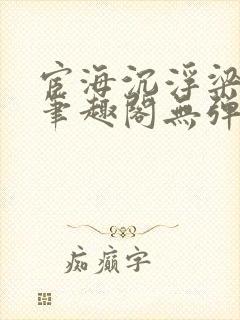 宦海沉浮梁
笔趣阁无弹
痴癫字